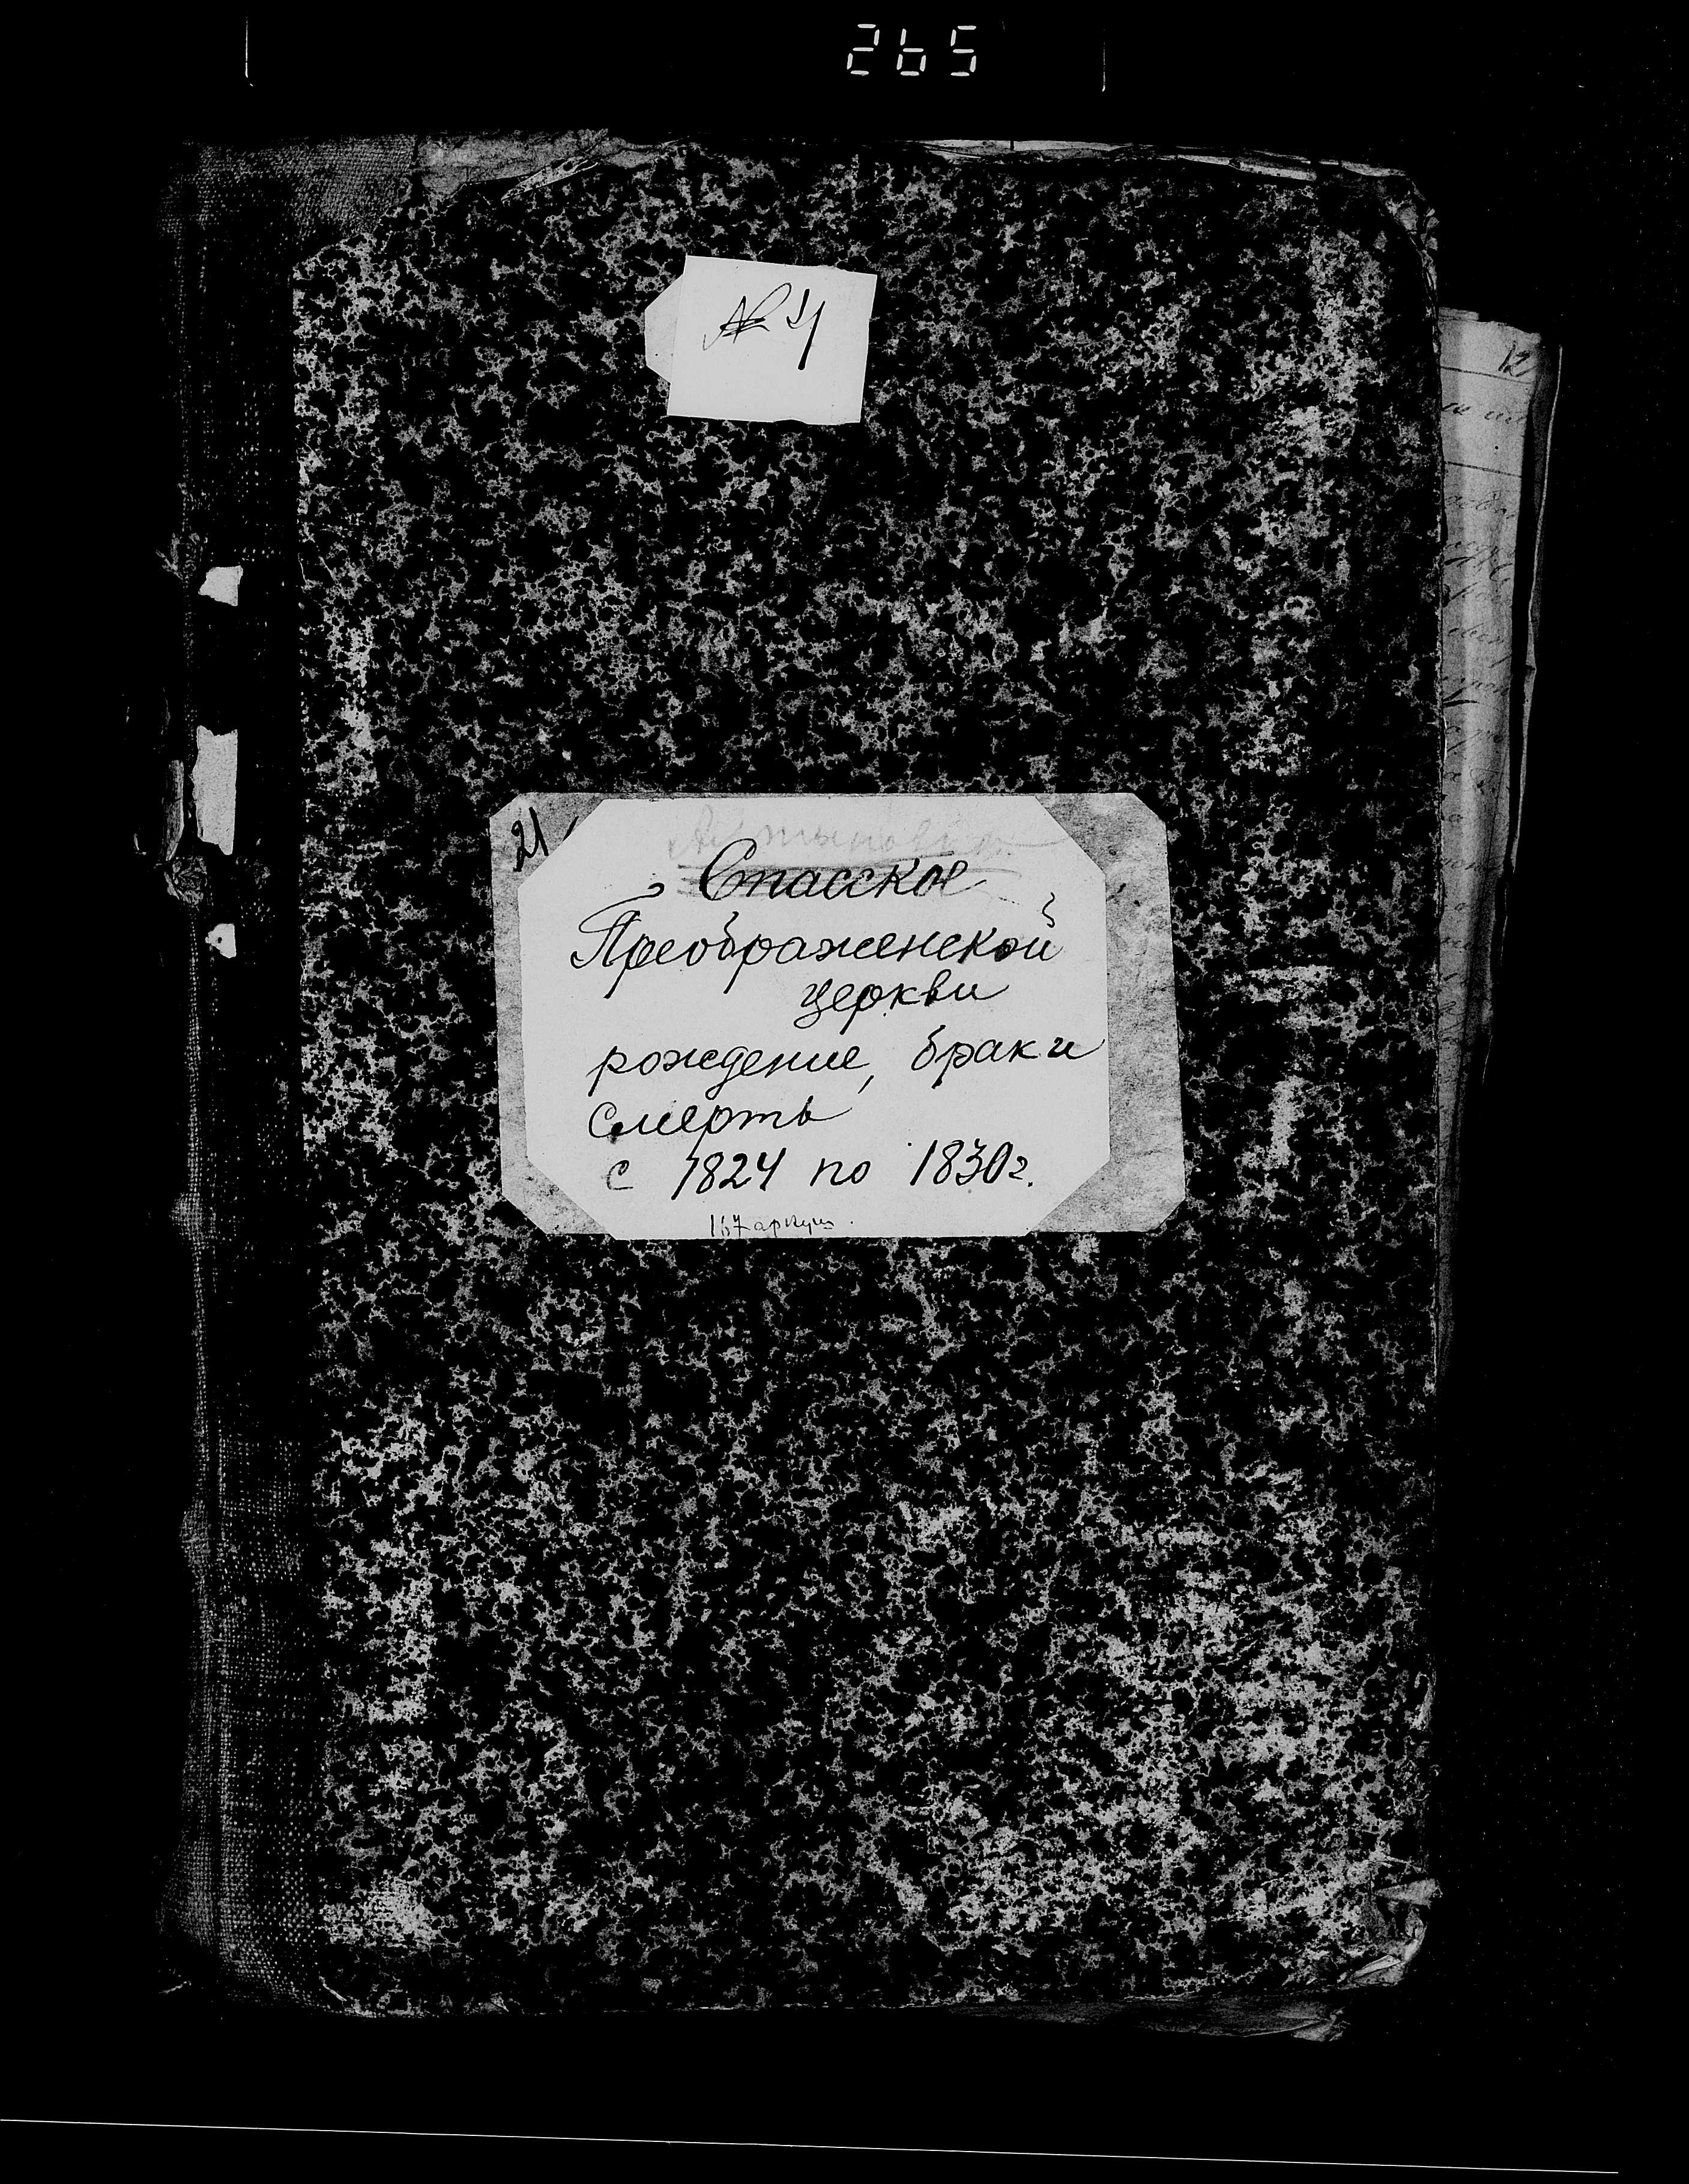 265
№ 4
12
21
Спасское
Преображенской
церкви
рождение, браки
смерть
с 1824 по 1830г.
167 аркуш